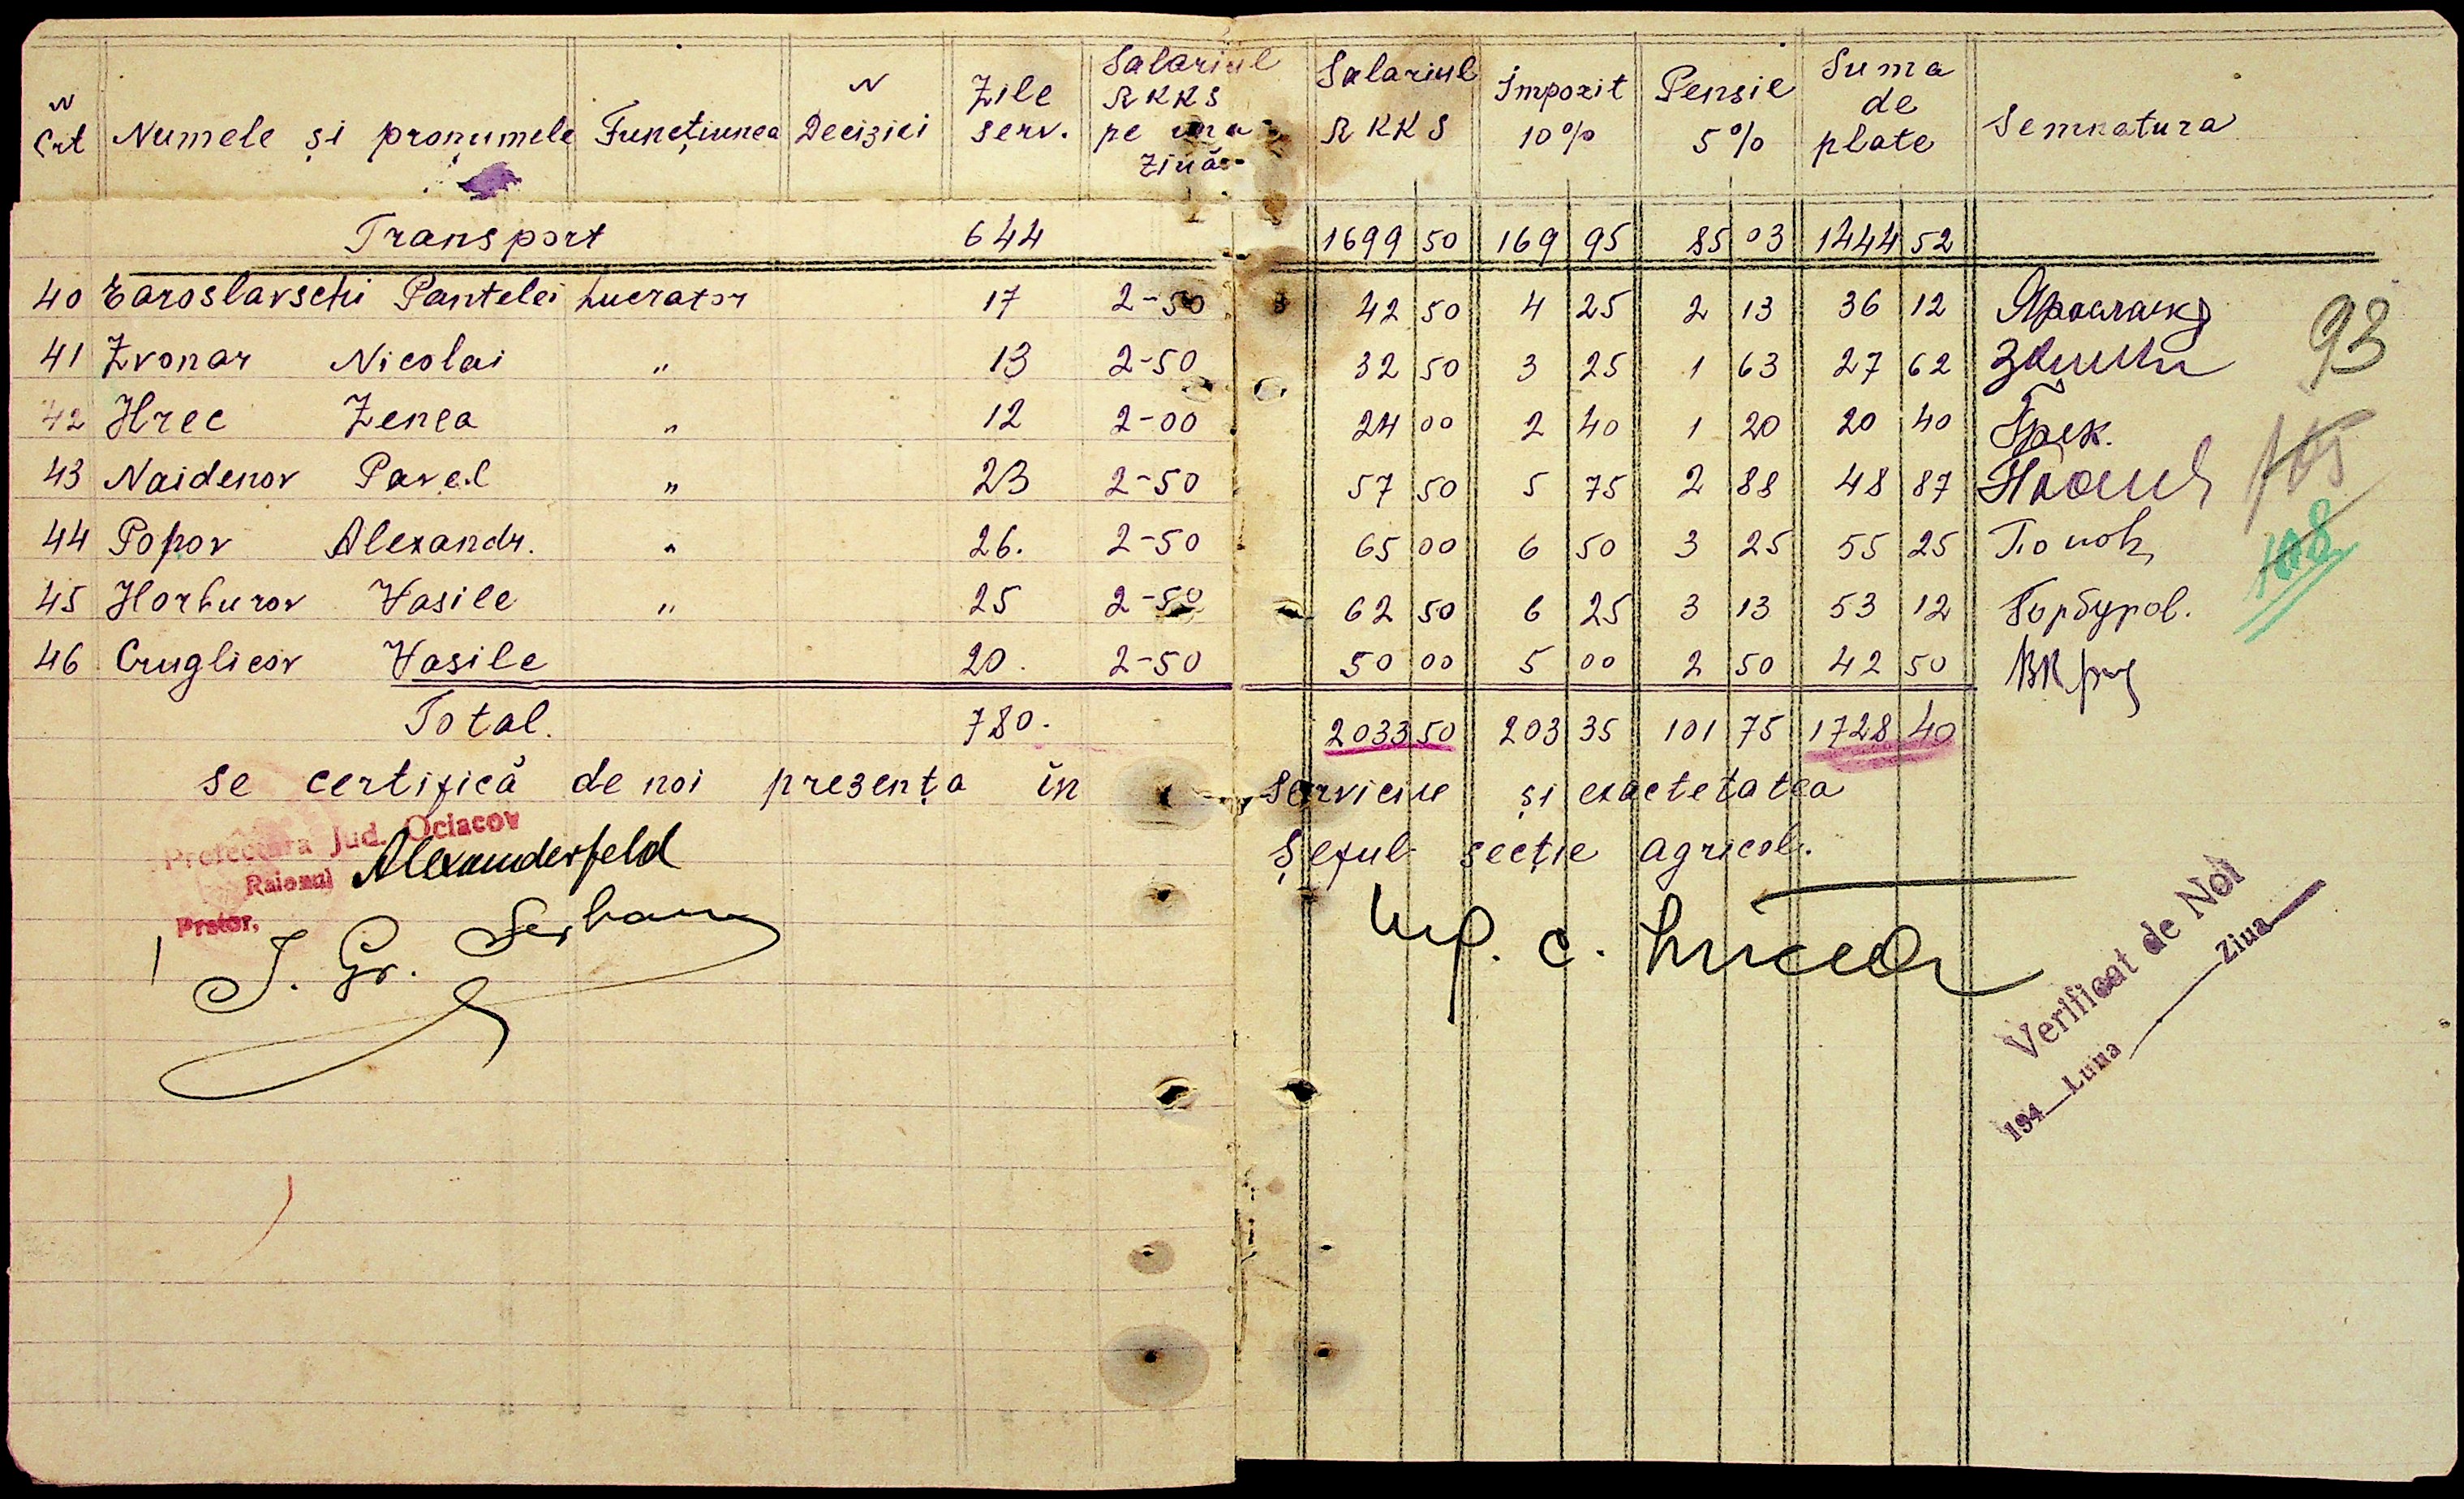 N Crt Numele și pronumele Funcțiunea N Deciziei Zile serv. Salariul RKKS pe una ziuă Salariul RKKS Impozit 10% Pensie 5% Suma de plate Semnatura
Transport 644 1699 50 169 95 85 03 1444 52
40 Earoslavschi Pantelei Lucrator 17 2-50 42 50 4 25 2 13 36 12
41 Zvonar Nicolai " 13 2-50 32 50 3 25 1 63 27 62
93
42 Hrec Zenea " 12 2-00 24 00 2 40 1 20 20 40 Грек.
43 Naidenov Pavel " 23 2-50 57 50 5 75 2 88 48 87
105
44 Popov Alexandr. " 26. 2-50 65 00 6 50 3 25 55 25 Попов
108
45 Horburov Vasile " 25 2-50 62 50 6 25 3 13 53 12 Горбуров.
46 Cruglicov Vasile 20. 2-50 50 00 5 00 2 50 42 50
Total. 780. 2033 50 203 35 101 75 1728 40
se certifică de noi prezența în serviciu și exactetatea
Prefectura Jud. Ociacov
Raionul Alexanderfeld
Pretor,
J. Gr. Serban
Șeful secție agricol.
Verificat de Noi
194 Luna Ziua